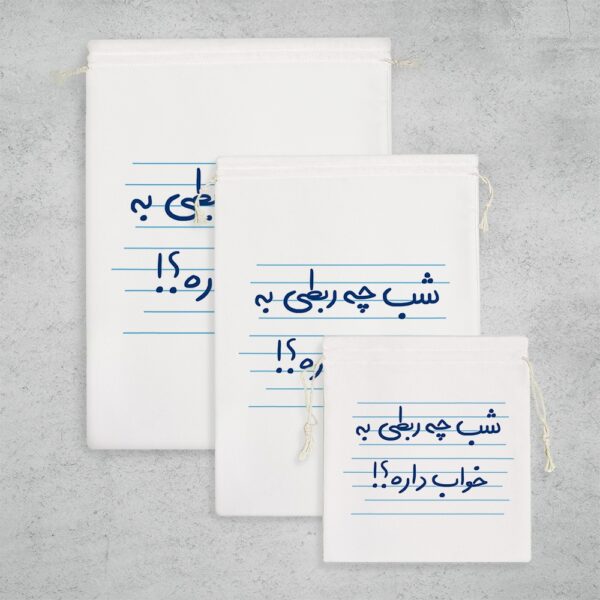 بطی به
ره؟!
شب چه ربطی به
ره؟!
شب چه ربطی به
خواب داره؟!